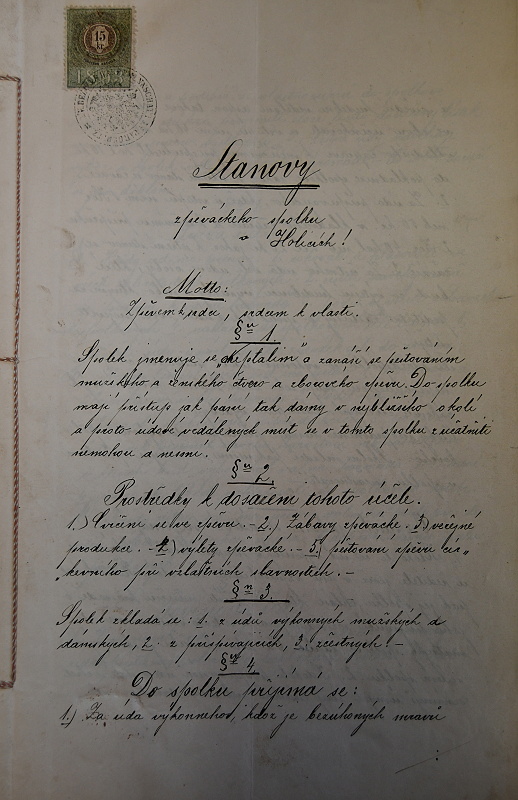 15
kr.
Stanovy
zpěváckého spolku
v Holicích!
Motto:
Zpěvem k srdci, srdcem k vlasti.
§ 1.
Spolek jmenuje se a zanáší se pěstováním
mužského a ženského čtvero a sborového zpěvu. Do spolku
mají přístup jak páni, tak dámy v nejbližšího okolí
a proto údové vzdálených míst se v tomto spolku zúčastniti
nemohou a nesmí.
§ 2.
Prostředky k dosažení tohoto účele.
1.) Cvičení se ve zpěvu. - 2.) Zábavy zpěvácké. 3.) veřejné
produkce. - 4.) výlety zpěvácké. - 5.) pěstování zpěvu cír„
kevního při zvláštních slavnostech. -
§ 3.
Spolek skládá se: 1. z údů výkonných mužských a
dámských, 2. z přispívajících, 3. z čestných. -
§ 4.
Do spolku přijímá se:
1.) Za úda výkonného, kdož je bezúhoných mravů